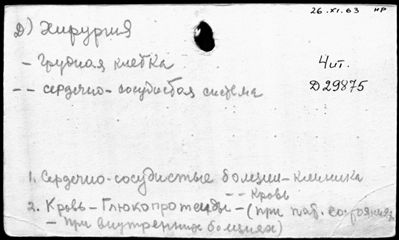 26.XI.63 НР
Д) Хирургия
- Грудная клетка
4ит.
-- сердечно-сосудистая система
Д29875
1. Сердечно-сосудистые болезни-клиника
-- Кровь
2. Кровь-Глюкопротеиды-(при пат. состояниях
- при внутренних болезнях)